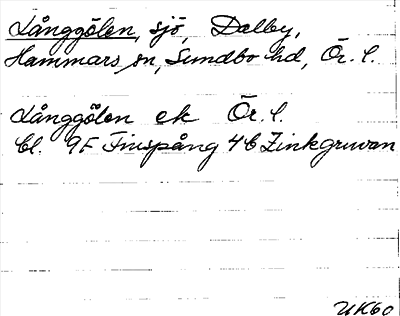 Långgölen, sjö, Dalby,
Hammars sn, Sundbo hd, Ör. l.
Långgölen ek Ör. l.
bl. 9F Finspång 4b Zinkgruvan
UK60